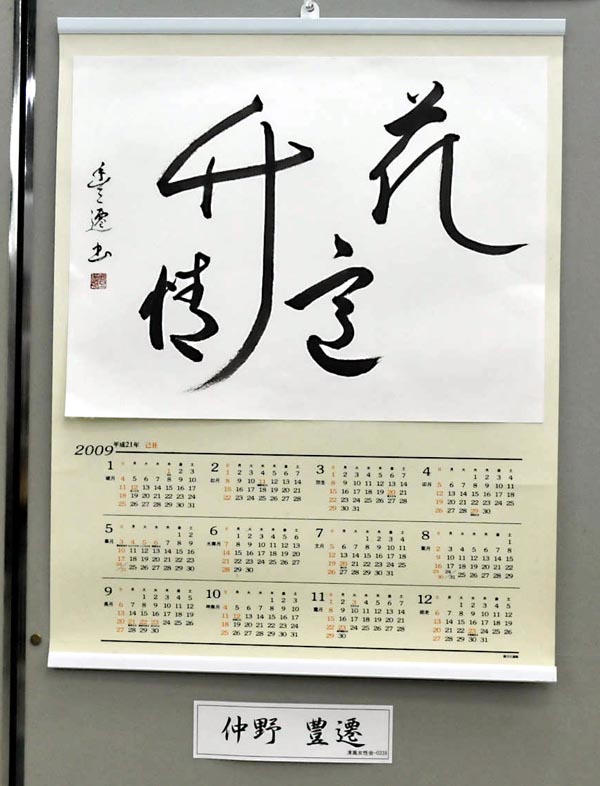 花意
竹情
豊遷書
2009 平成21年 己丑
1 睦月
日 月 火 水 木 金 土
1 2 3
4 5 6 7 8 9 10
11 12 13 14 15 16 17
18 19 20 21 22 23 24
25 26 27 28 29 30 31
2 如月
日 月 火 水 木 金 土
1 2 3 4 5 6 7
8 9 10 11 12 13 14
15 16 17 18 19 20 21
22 23 24 25 26 27 28
3 弥生
日 月 火 水 木 金 土
1 2 3 4 5 6 7
8 9 10 11 12 13 14
15 16 17 18 19 20 21
22 23 24 25 26 27 28
29 30 31
4 卯月
日 月 火 水 木 金 土
1 2 3 4
5 6 7 8 9 10 11
12 13 14 15 16 17 18
19 20 21 22 23 24 25
26 27 28 29 30
5 皐月
日 月 火 水 木 金 土
1 2
3 4 5 6 7 8 9
10 11 12 13 14 15 16
17 18 19 20 21 22 23
24/31 25 26 27 28 29 30
6 水無月
日 月 火 水 木 金 土
1 2 3 4 5 6
7 8 9 10 11 12 13
14 15 16 17 18 19 20
21 22 23 24 25 26 27
28 29 30
7 文月
日 月 火 水 木 金 土
1 2 3 4
5 6 7 8 9 10 11
12 13 14 15 16 17 18
19 20 21 22 23 24 25
26 27 28 29 30 31
8 葉月
日 月 火 水 木 金 土
1
2 3 4 5 6 7 8
9 10 11 12 13 14 15
16 17 18 19 20 21 22
23/30 24/31 25 26 27 28 29
9 長月
日 月 火 水 木 金 土
1 2 3 4 5
6 7 8 9 10 11 12
13 14 15 16 17 18 19
20 21 22 23 24 25 26
27 28 29 30
10 神無月
日 月 火 水 木 金 土
1 2 3
4 5 6 7 8 9 10
11 12 13 14 15 16 17
18 19 20 21 22 23 24
25 26 27 28 29 30 31
11 霜月
日 月 火 水 木 金 土
1 2 3 4 5 6 7
8 9 10 11 12 13 14
15 16 17 18 19 20 21
22 23 24 25 26 27 28
29 30
12 師走
日 月 火 水 木 金 土
1 2 3 4 5
6 7 8 9 10 11 12
13 14 15 16 17 18 19
20 21 22 23 24 25 26
27 28 29 30 31
仲野 豊遷